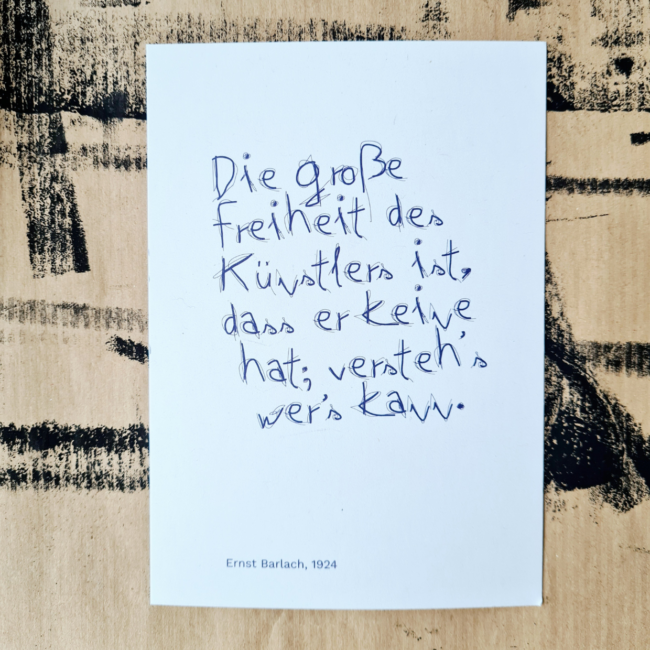 Die große
Freiheit des
Künstlers ist,
dass er keine
hat; versteh's
wer's kann.
Ernst Barlach, 1924